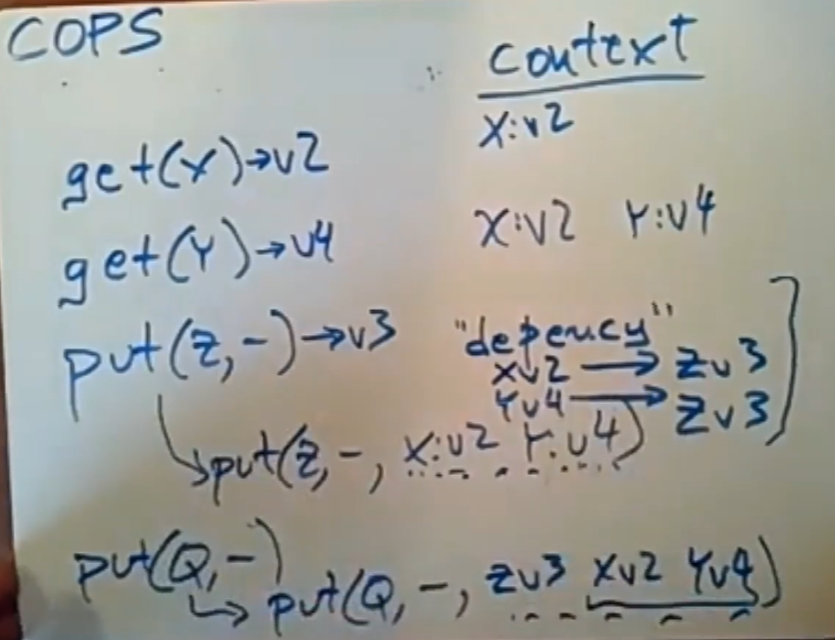 COPS
context
x:v2
get(x)→v2
x:v2 Y:v4
get(Y)→v4
put(z,-)→v3
"depency"
xv2 → zv3
Yv4 → zv3
put(z,-, x:v2 Y:v4)
put(Q,-)
put(Q,-, zv3 xv2 Yv4)